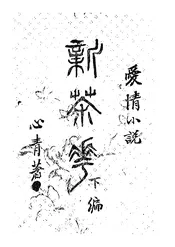 愛情小説
新茶花
下編
心青著